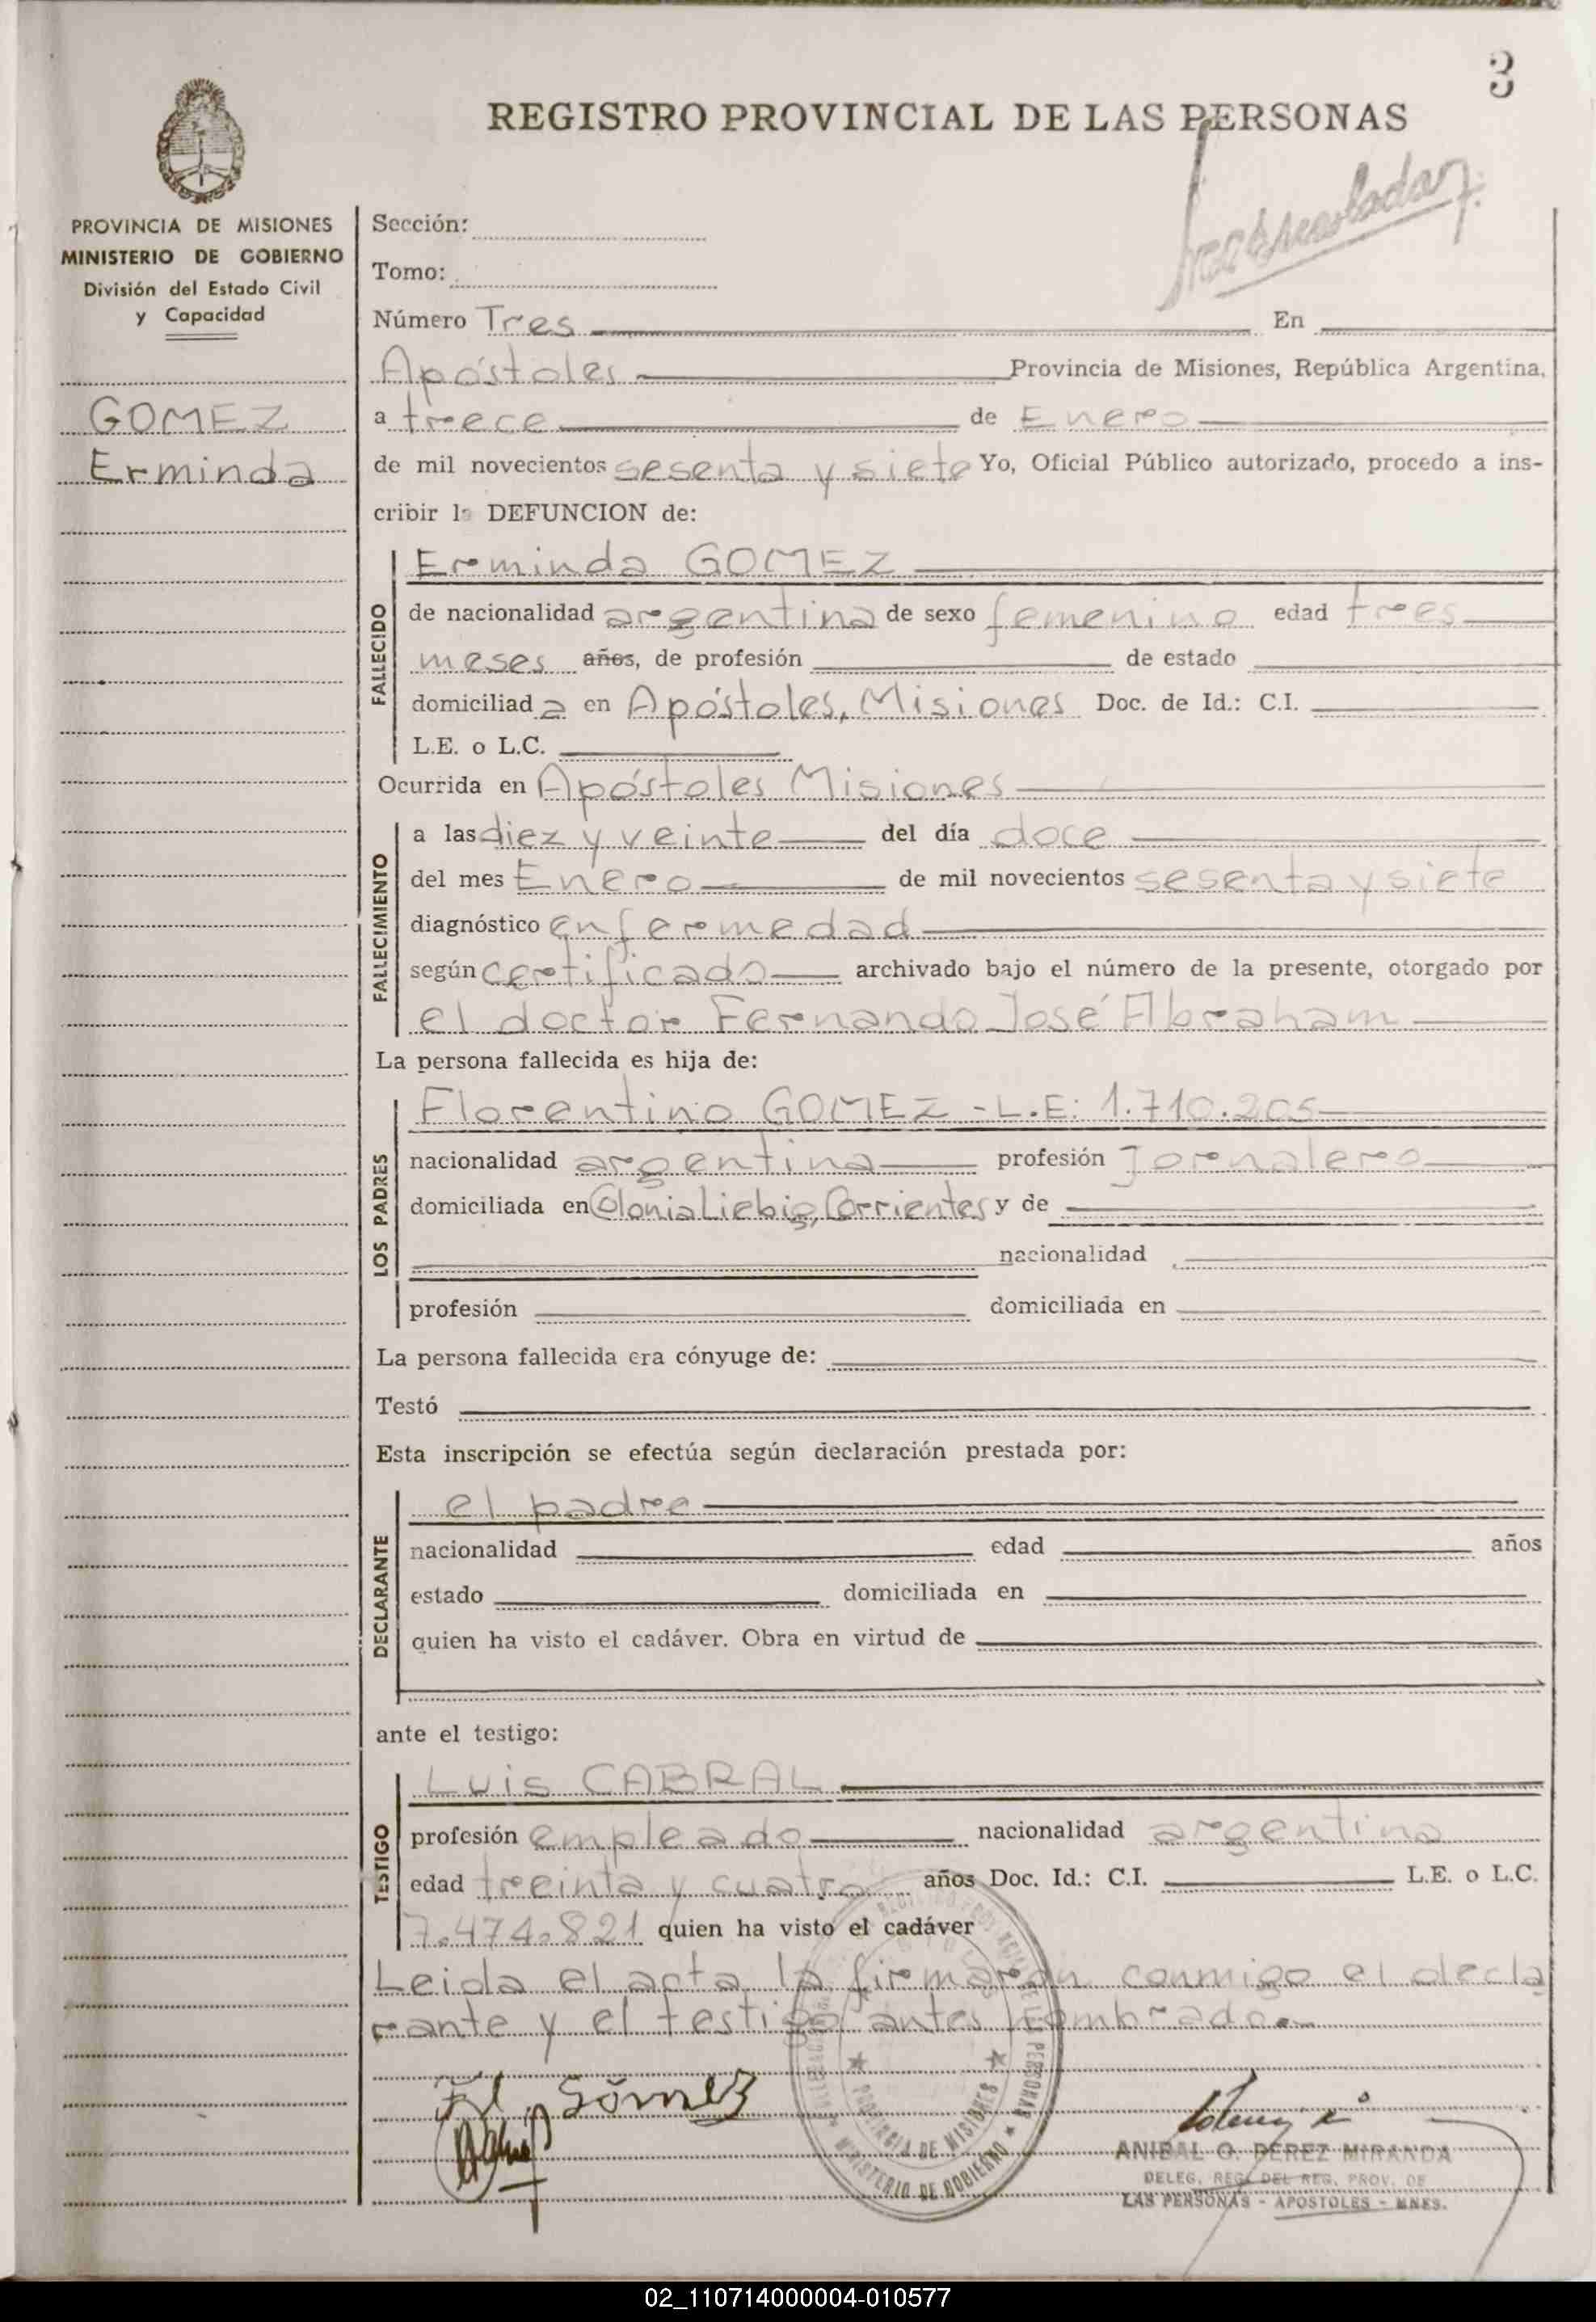 3
REGISTRO PROVINCIAL DE LAS PERSONAS
PROVINCIA DE MISIONES
MINISTERIO DE GOBIERNO
División del Estado Civil
y Capacidad
GOMEZ
Erminda
Sección:
Tomo:
Número Tres En
Apóstoles Provincia de Misiones, República Argentina,
a trece de Enero
de mil novecientos sesenta y siete Yo, Oficial Público autorizado, procedo a ins-
cribir la DEFUNCION de:
FALLECIDO
Erminda GOMEZ
de nacionalidad argentina de sexo femenino edad tres
meses años, de profesión de estado
domiciliad a en Apóstoles, Misiones Doc. de Id.: C.I.
L.E. o L.C.
Ocurrida en Apóstoles Misiones
FALLECIMIENTO
a las diez y veinte del día doce
del mes Enero de mil novecientos sesenta y siete
diagnóstico enfermedad
según certificado archivado bajo el número de la presente, otorgado por
el doctor Fernando José Abraham
La persona fallecida es hija de:
LOS PADRES
Florentino GOMEZ - L.E: 1.710.205
nacionalidad argentina profesión Jornalero
domiciliada en Colonia Liebig, Corrientes y de
nacionalidad
profesión domiciliada en
La persona fallecida era cónyuge de:
Testó
Esta inscripción se efectúa según declaración prestada por:
DECLARANTE
el padre
nacionalidad edad años
estado domiciliada en
quien ha visto el cadáver. Obra en virtud de
ante el testigo:
TESTIGO
Luis CABRAL
profesión empleado nacionalidad argentina
edad treinta y cuatro años Doc. Id.: C.I. L.E. o L.C.
7.474.821 quien ha visto el cadáver
Leida el acta la firmaron conmigo el decla
rante y el testigo antes nombrado.
Gómez
PROVINCIA DE MISIONES
MINISTERIO DE GOBIERNO
ANIBAL O. PEREZ MIRANDA
DELEG. REG. DEL REG. PROV. DE
LAS PERSONAS - APOSTOLES - MNES.
02_110714000004-010577